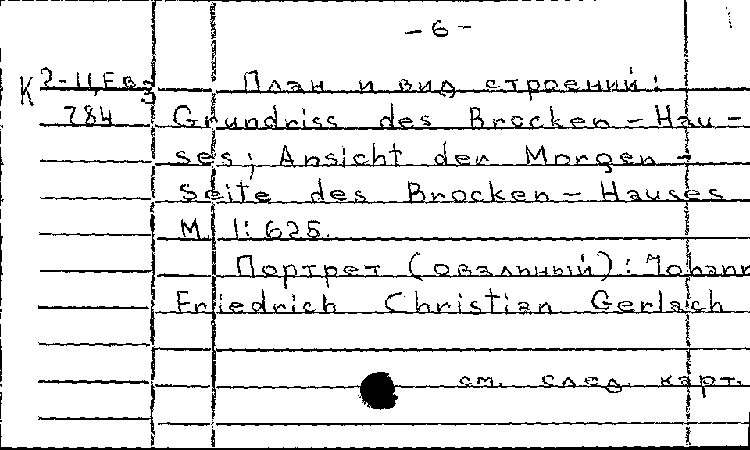 - 6 -
К 2-11, Ев 3
784
План и вид строений:
Grundriss des Brocken-Hau-
ses; Ansicht der Morgen-
Seite des Brocken-Hauses
М. 1:625.
Портрет (овальный): Johann
Friedrich Christian Gerlach
см. след. карт.